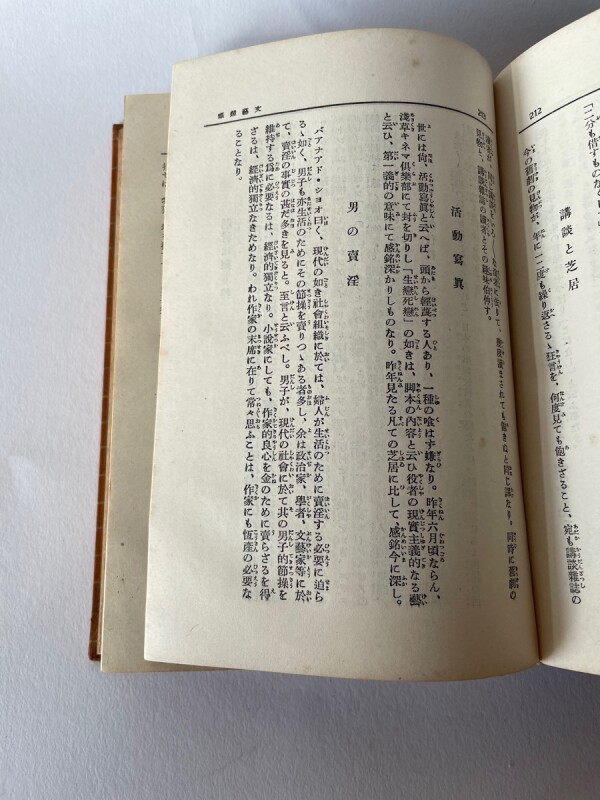 212
「二分も倍すものなし」
講談と芝居
今の新劇の見物が、年に一二度も繰り返さるゝ狂言を、何度見ても飽きざること、宛も講談雜誌の
213
文藝雜感
活動寫眞
世には尚、活動寫眞と云へば、頭から輕蔑する人あり、一種の喰はず嫌なり。昨年六月頃ならん、
淺草キネマ倶樂部にて封を切りし「生戀死戀」の如きは、脚本の內容と云ひ役者の現實主義的なる藝
と云ひ、第一義的の意味にて感銘深かりしものなり。昨年見たる凡ての芝居に比して、感銘今に深し。
男の賣淫
バアナアド・ショオ曰く、現代の如き社會組織に於ては、婦人が生活のために賣淫する必要に迫ら
るゝ如く、男子も亦生活のためにその節操を賣りつゝある者多し、余は政治家、學者、文藝家等に於
て、賣淫の事實の甚だ多きを見ると。至言と云ふべし。男子が、現代の社會に於て其の男子的節操を
維持する爲に必要なるは、經濟的獨立なり。小說家にしても、作家的良心を金のために賣らざるを得
ざるは、經濟的獨立なきためなり。われ作家の末席に在りて常々思ふことは、作家にも恆產の必要な
ることなり。